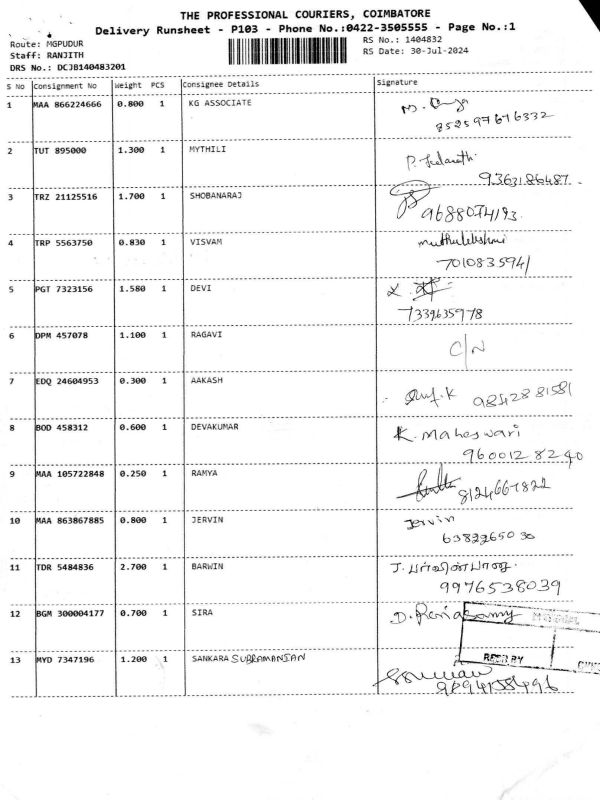 THE PROFESSIONAL COURIERS, COIMBATORE
Delivery Runsheet - P103 - Phone No.:0422-3505555 - Page No.:1
Route: MGPUDUR
RS No.: 1404832
Staff: RANJITH
RS Date: 30-Jul-2024
DRS No.: DCJB140483201
S No Consignment No Weight PCS Consignee Details Signature
1 MAA 866224666 0.800 1 KG ASSOCIATE
8525976 76332
2 TUT 895000 1.300 1 MYTHILI
9363186487
3 TRZ 21125516 1.700 1 SHOBANARAJ
9688074193
4 TRP 5563750 0.830 1 VISVAM
7010835941
5 PGT 7323156 1.580 1 DEVI
7339635978
6 DPM 457078 1.100 1 RAGAVI C/N
7 EDQ 24604953 0.300 1 AAKASH 9842881581
8 BOD 458312 0.600 1 DEVAKUMAR K. Maheswari
9600128240
9 MAA 105722848 0.250 1 RAMYA
8124667822
10 MAA 863867885 0.800 1 JERVIN Jervin
6382265030
11 TDR 5484836 2.700 1 BARWIN
9976538039
12 BGM 300004177 0.700 1 SIRA
13 MYD 7347196 1.200 1 SANKARA SUBRAMANIAN